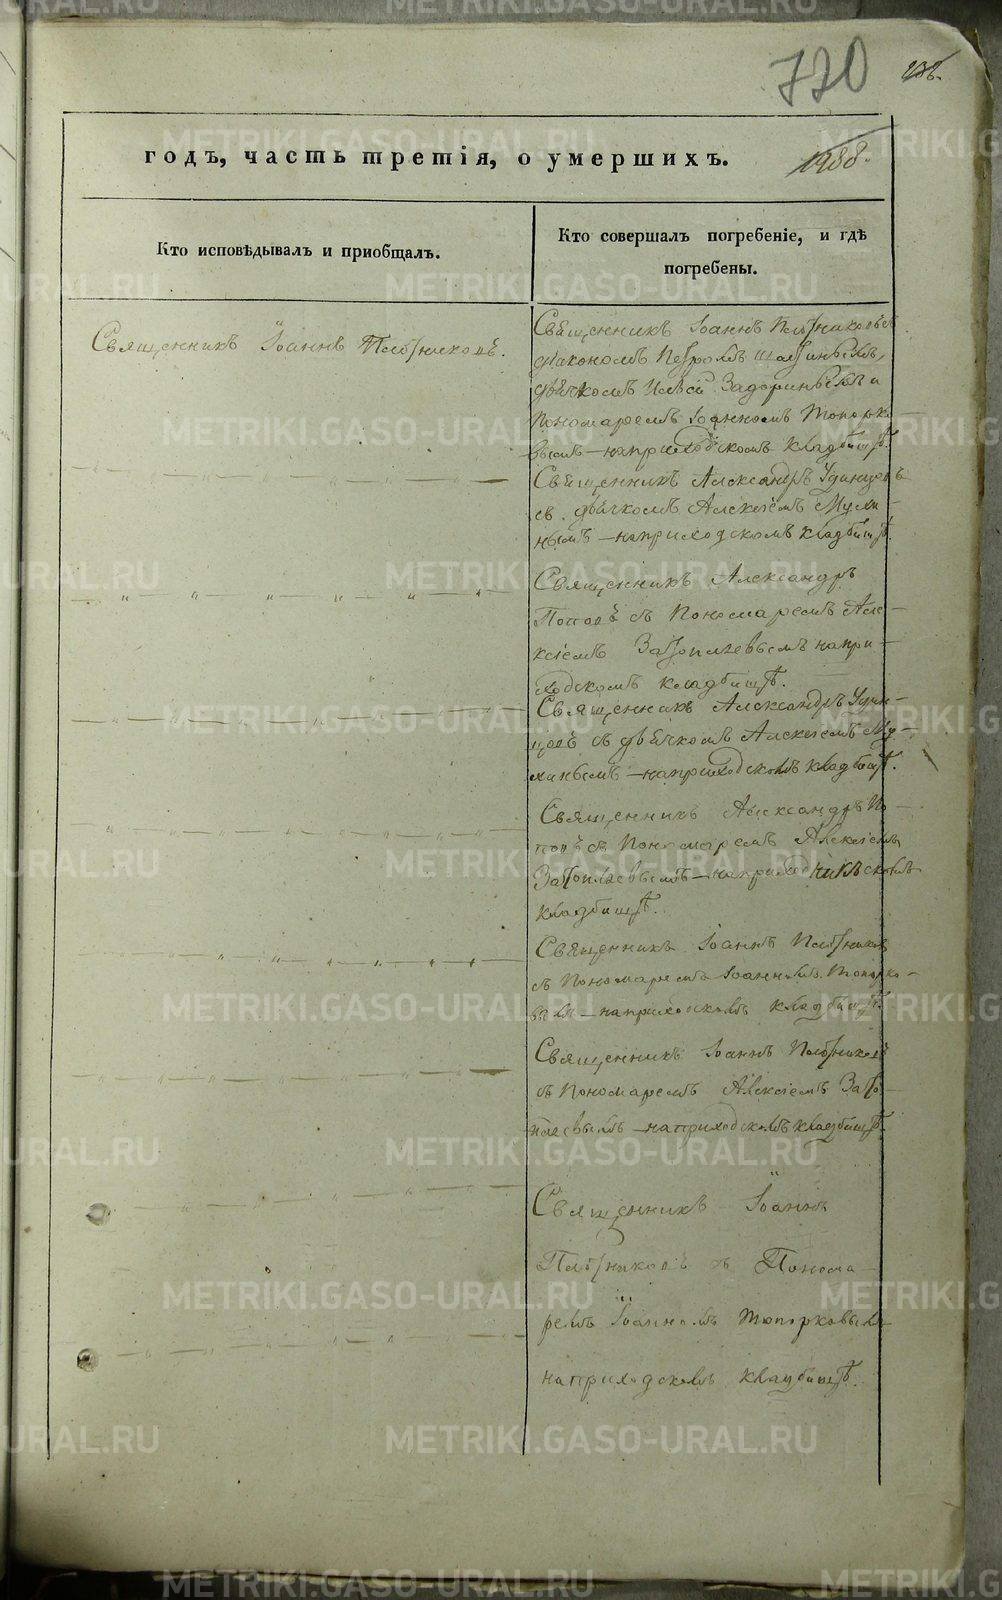 770
годъ, часть третія, о умершихъ.
1988.
Кто исповѣдывалъ и приобщалъ.
Кто совершалъ погребеніе, и гдѣ
погребены.
Священникъ Іоаннъ Плотниковъ.
Священникъ Іоаннъ Плотниковъ съ
діакономъ Петромъ
дьячкомъ Задоринымъ и
Пономаремъ Іоанномъ Топорко-
вымъ – на приходскомъ кладбищѣ.
Священникъ Александръ Удинцовъ
съ дьячкомъ Алексіемъ Мули-
нымъ – на приходскомъ кладбищѣ.
Священникъ Александръ
Поповъ съ Пономаремъ Але-
ксіемъ Затопляевымъ на при-
ходскомъ кладбищѣ.
Священникъ Александръ Удин-
цовъ съ дьячкомъ Алексіемъ Му-
линымъ – на приходскомъ кладбищѣ.
Священникъ Александръ По-
повъ съ Пономаремъ Алексіемъ
Затопляевымъ – на
кладбищѣ.
Священникъ Іоаннъ Плотниковъ
съ Пономаремъ Іоанномъ Топорко-
вымъ – на приходскомъ кладбищѣ.
Священникъ Іоаннъ Плотниковъ
съ Пономаремъ Алексіемъ Зато-
пляевымъ – на приходскомъ кладбищѣ.
Священникъ Іоаннъ
Плотниковъ съ Понома-
ремъ Іоанномъ Топорковымъ
на приходскомъ кладбищѣ.
METRIKI.GASO-URAL.RU